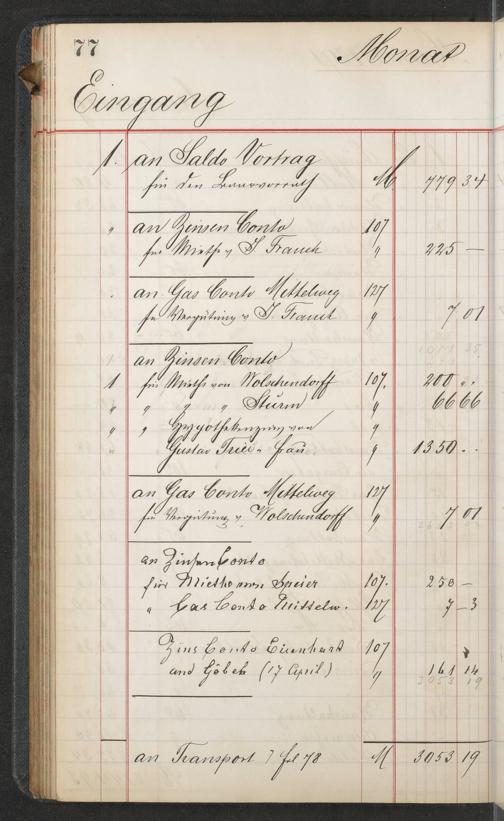 77 Monat
Eingang
1. an Saldo Vortrag
für den Baarvorrath M 779 34
" an Zinsen Conto 107
für Miethe v J Franck " 225 —
. an Gas Conto Mittelweg 127
für Vergütung v J. Franck " 7 01
an Zinsen Conto
1 für Miethe von Wolschendorff 107. 200 ..
" " " " Sturm " 66 66
" " Hypothekenzins von "
" Gustav Fried. frau " 1350 ..
an Gas Conto Mittelweg 127
für Vergütung v. Wolschendorff " 7 01
an Zinsen Conto
für Miethe von Speier 107. 250 —
" Gas Conto Mittelw. 127 7 — 3
Zins Conto Eisenhart 107
und Göbek (17 April) " 161 14
3053 19
an Transport fol 78 M 3053 19